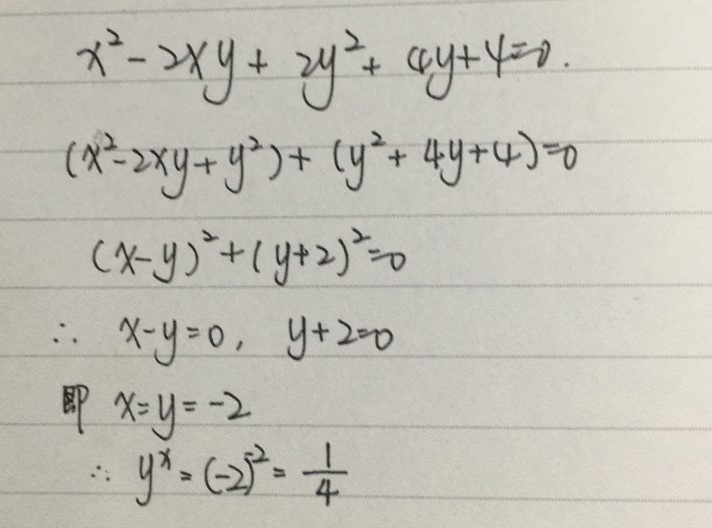 x²-2xy+2y²+4y+4=0.
(x²-2xy+y²)+(y²+4y+4)=0
(x-y)²+(y+2)²=0
∴ x-y=0, y+2=0
即 x=y=-2
∴ yˣ=(-2)⁻²=1/4